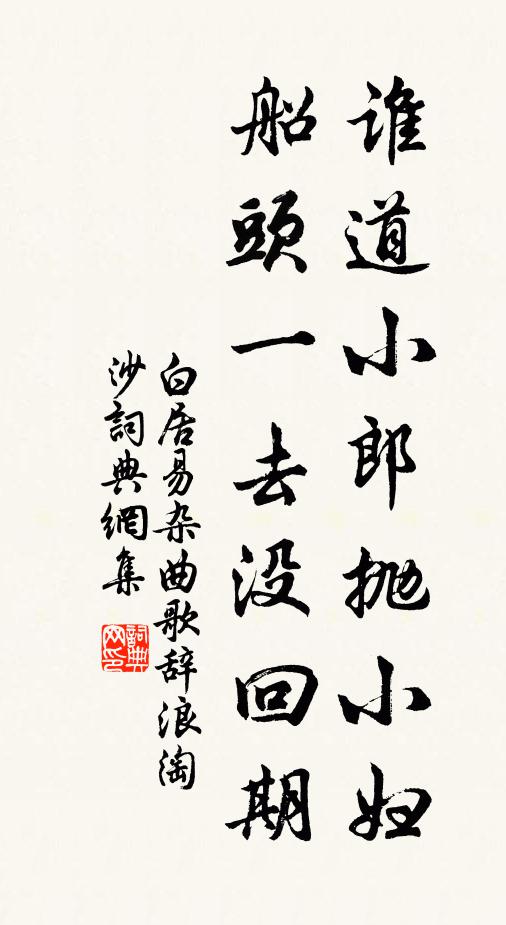 谁道小郎抛小妇
船頭一去没回期
白居易杂曲歌辞浪淘
沙詞典網集
詞典
网印